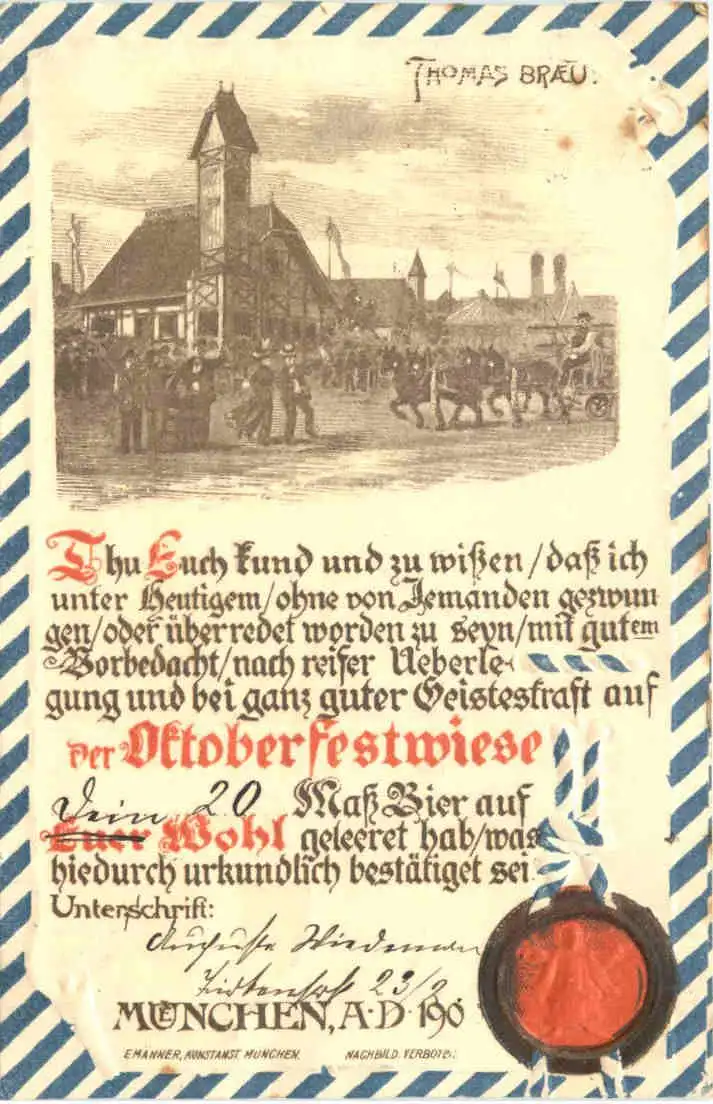 THOMAS BRÆU.
Thu Euch kund und zu wißen/daß ich
unter Heutigem/ohne von Jemanden gezwun
gen/oder überredet worden zu seyn/mit gutem
Vorbedacht/nach reifer Ueberle-
gung und bei ganz guter Geisteskraft auf
der Oktoberfestwiese
Dein 20 Maß Bier auf
Euer Wohl geleeret hab/was
hiedurch urkundlich bestätiget sei.
Unterschrift:
Auguste
23/2
MUENCHEN, A·D·190
E MANNER, KUNSTANST. MÜNCHEN. NACHBILD. VERBOTEN.